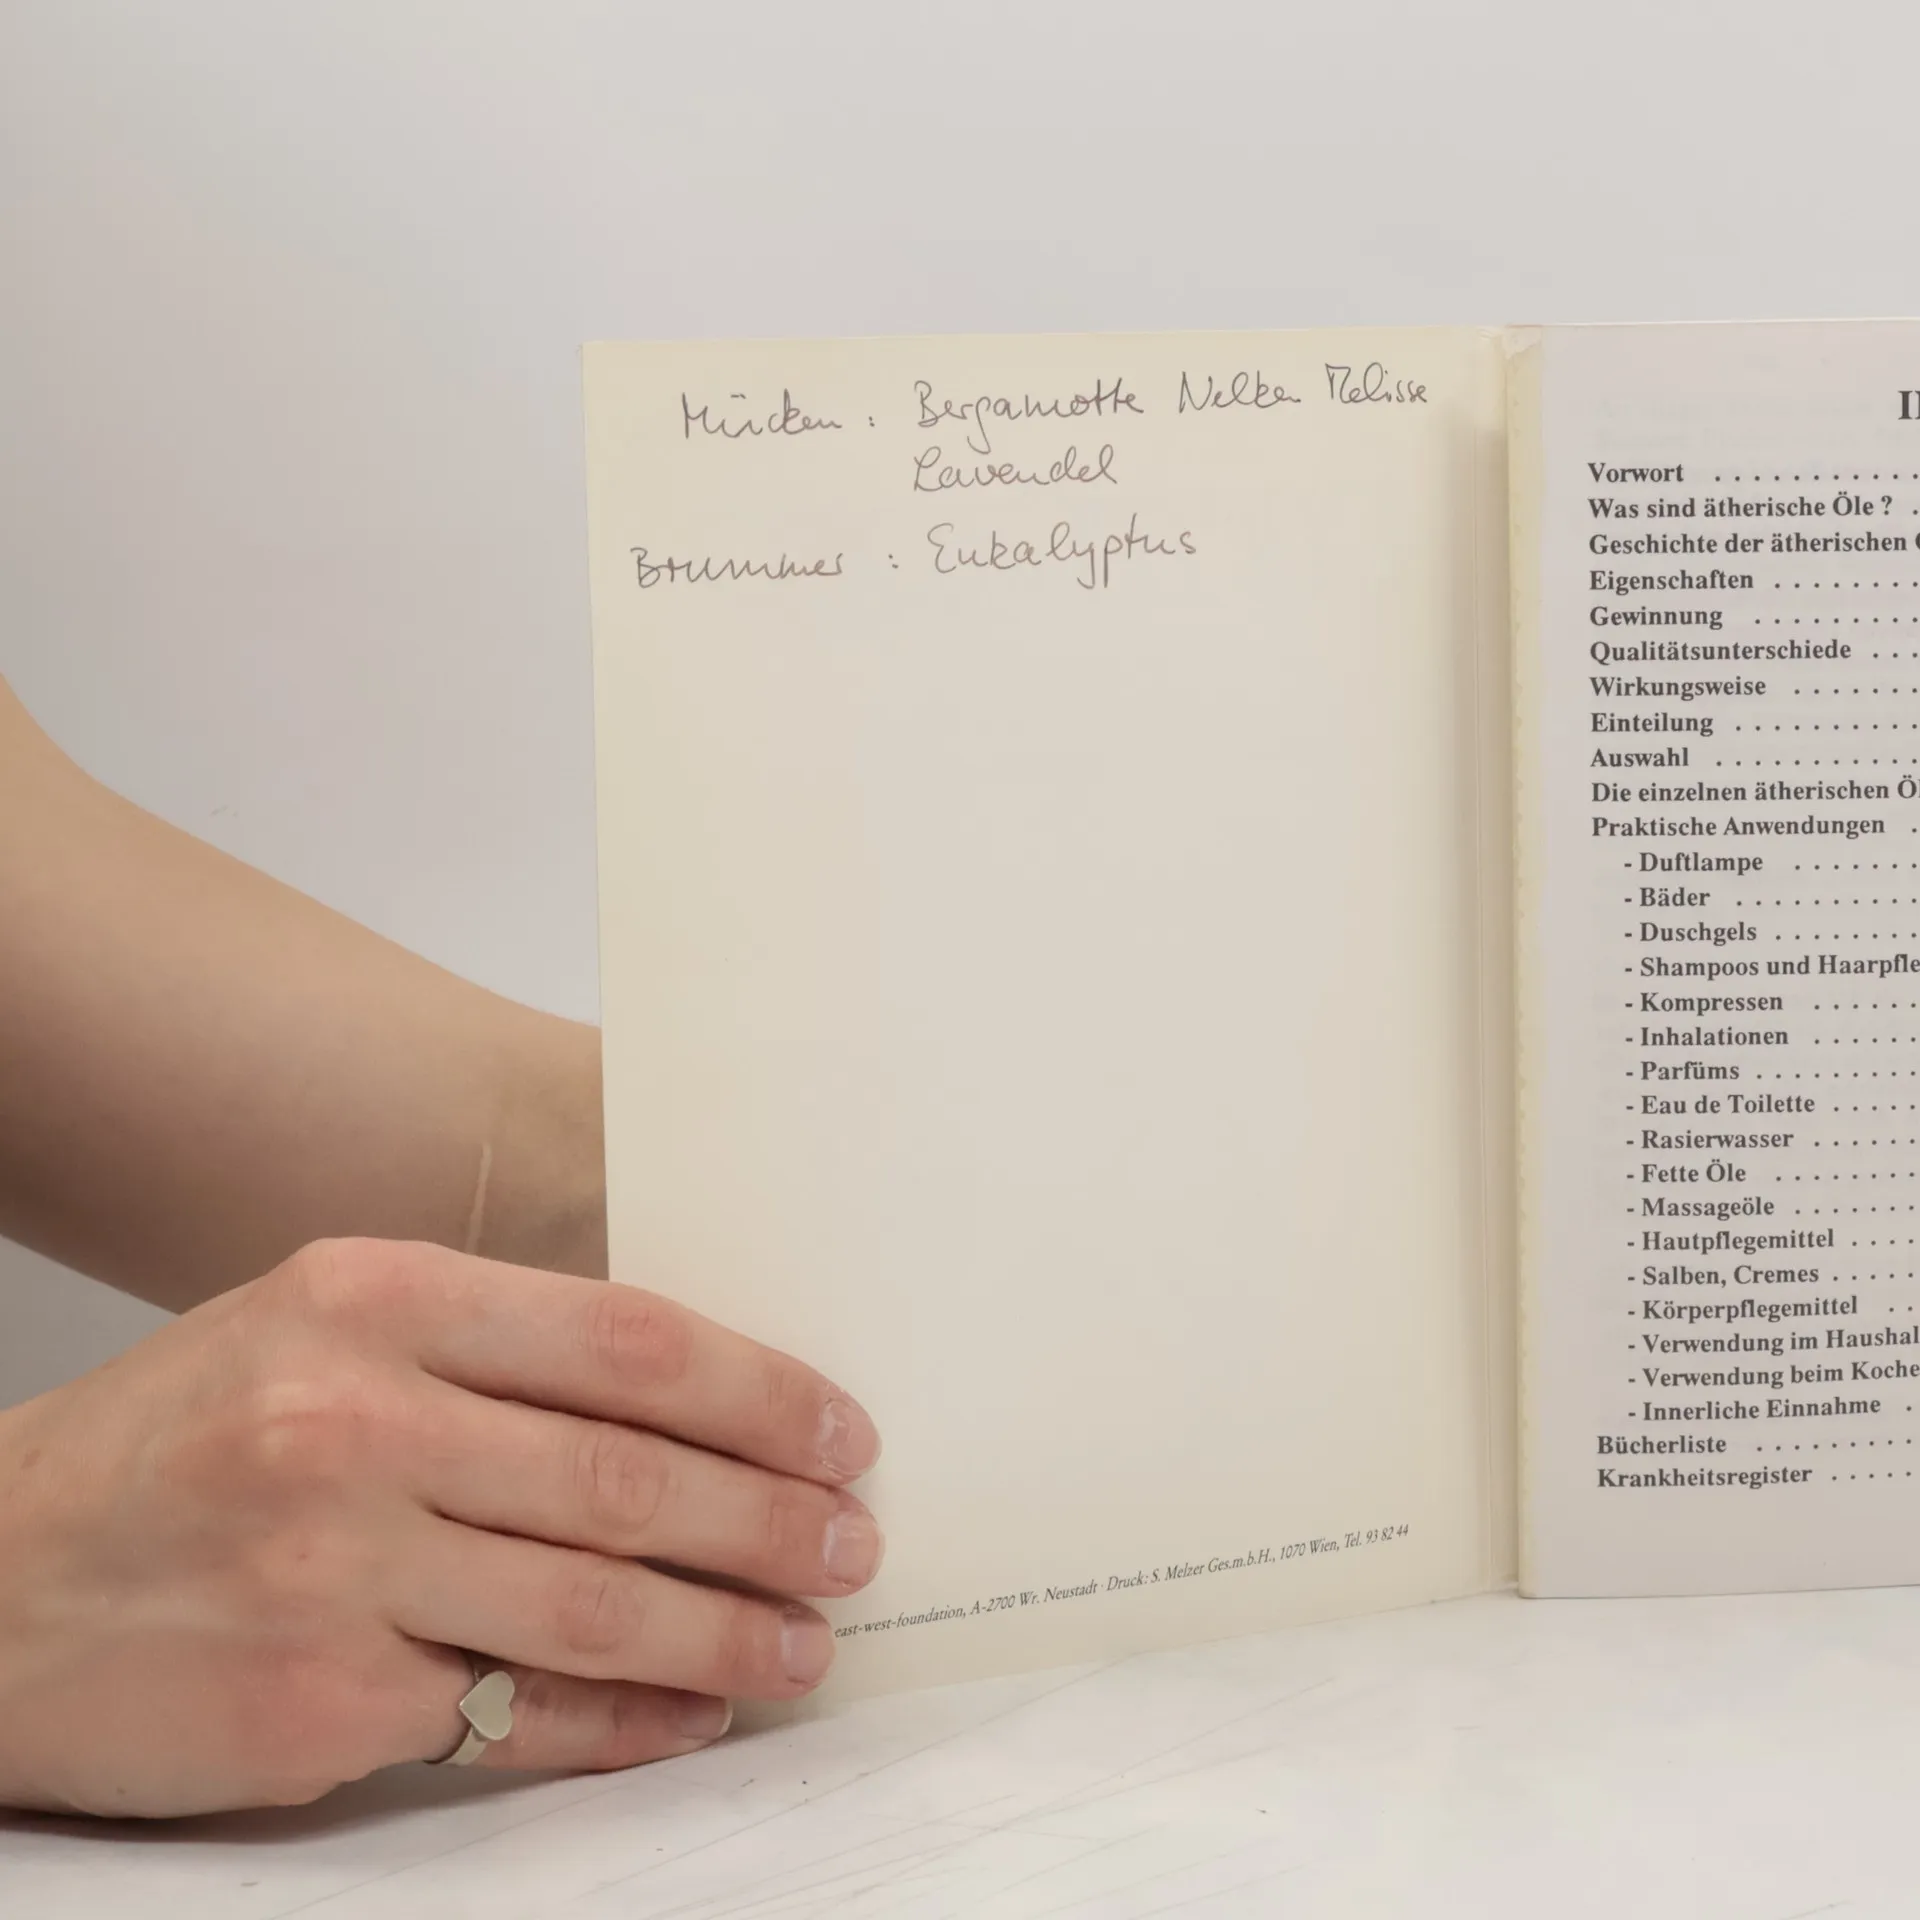 Mücken : Bergamotte Nelken Melisse
Lavendel
Brummer : Eukalyptus
east-west-foundation, A-2700 Wr. Neustadt · Druck: S. Melzer Ges.m.b.H., 1070 Wien, Tel. 93 82 44
Vorwort . . . . . . . . . . .
Was sind ätherische Öle ? .
Geschichte der ätherischen
Eigenschaften . . . . . . . .
Gewinnung . . . . . . . . .
Qualitätsunterschiede . . .
Wirkungsweise . . . . . . .
Einteilung . . . . . . . . . .
Auswahl . . . . . . . . . . .
Die einzelnen ätherischen
Praktische Anwendungen .
- Duftlampe . . . . . . .
- Bäder . . . . . . . . . .
- Duschgels . . . . . . . .
- Shampoos und Haarpfle
- Kompressen . . . . . .
- Inhalationen . . . . . .
- Parfüms . . . . . . . . .
- Eau de Toilette . . . . .
- Rasierwasser . . . . . .
- Fette Öle . . . . . . . .
- Massageöle . . . . . . .
- Hautpflegemittel . . . .
- Salben, Cremes . . . . .
- Körperpflegemittel . .
- Verwendung im Haushal
- Verwendung beim Koche
- Innerliche Einnahme .
Bücherliste . . . . . . . . .
Krankheitsregister . . . . .